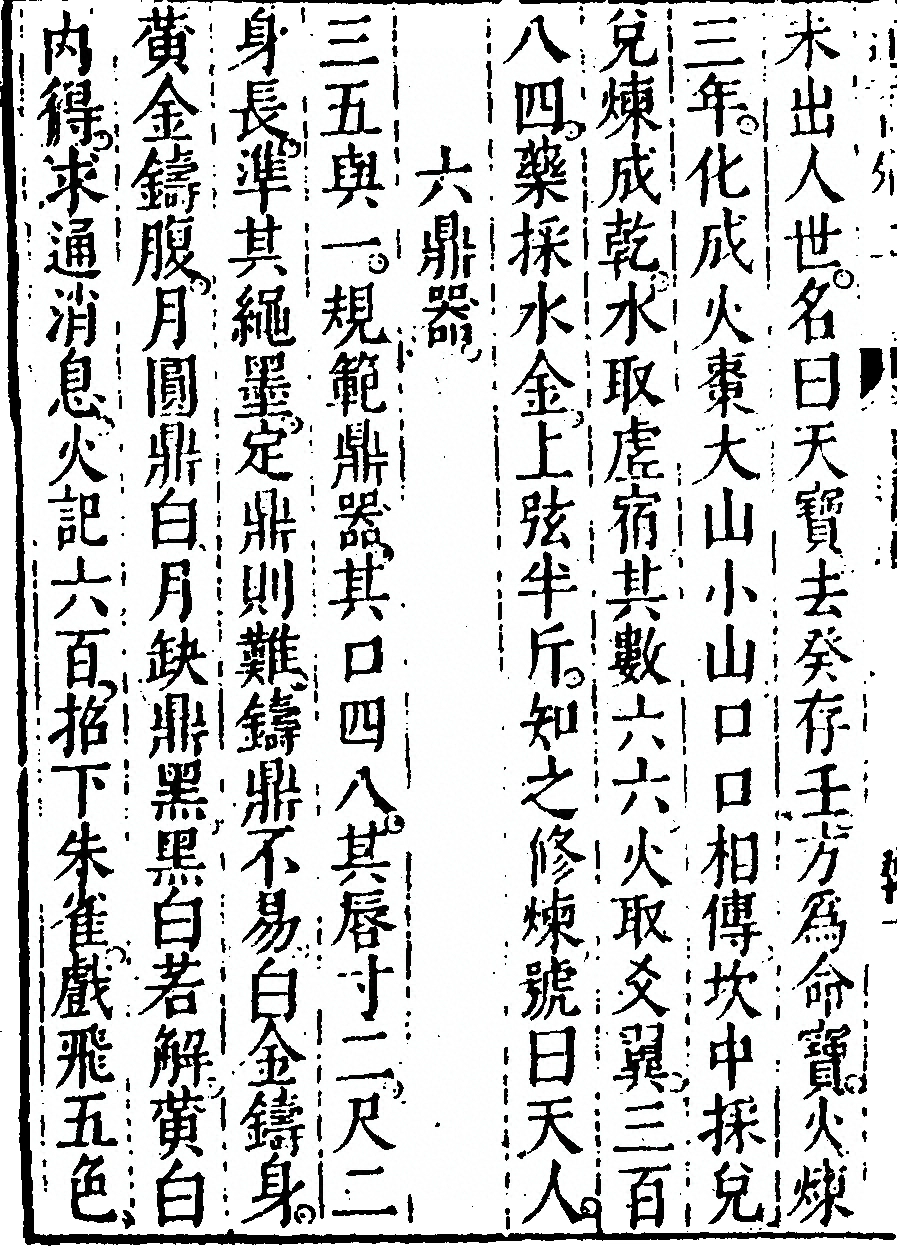 未出人世名曰天寶去癸存壬方爲命寶火煉
三年化成火棗大山小山口口相傳坎中採兌
兌煉成乾水取虛宿其數六六火取爻翼三百
八四藥採水金上弦半斤知之修煉號曰天人
六鼎器
三五與一規範鼎器其口四八其唇寸二尺二
身長準其繩墨定鼎則難鑄鼎不易白金鑄身
黃金鑄腹月圓鼎白月缺鼎黑黑白若解黃白
內得求通消息火記六百招下朱雀戲飛五色